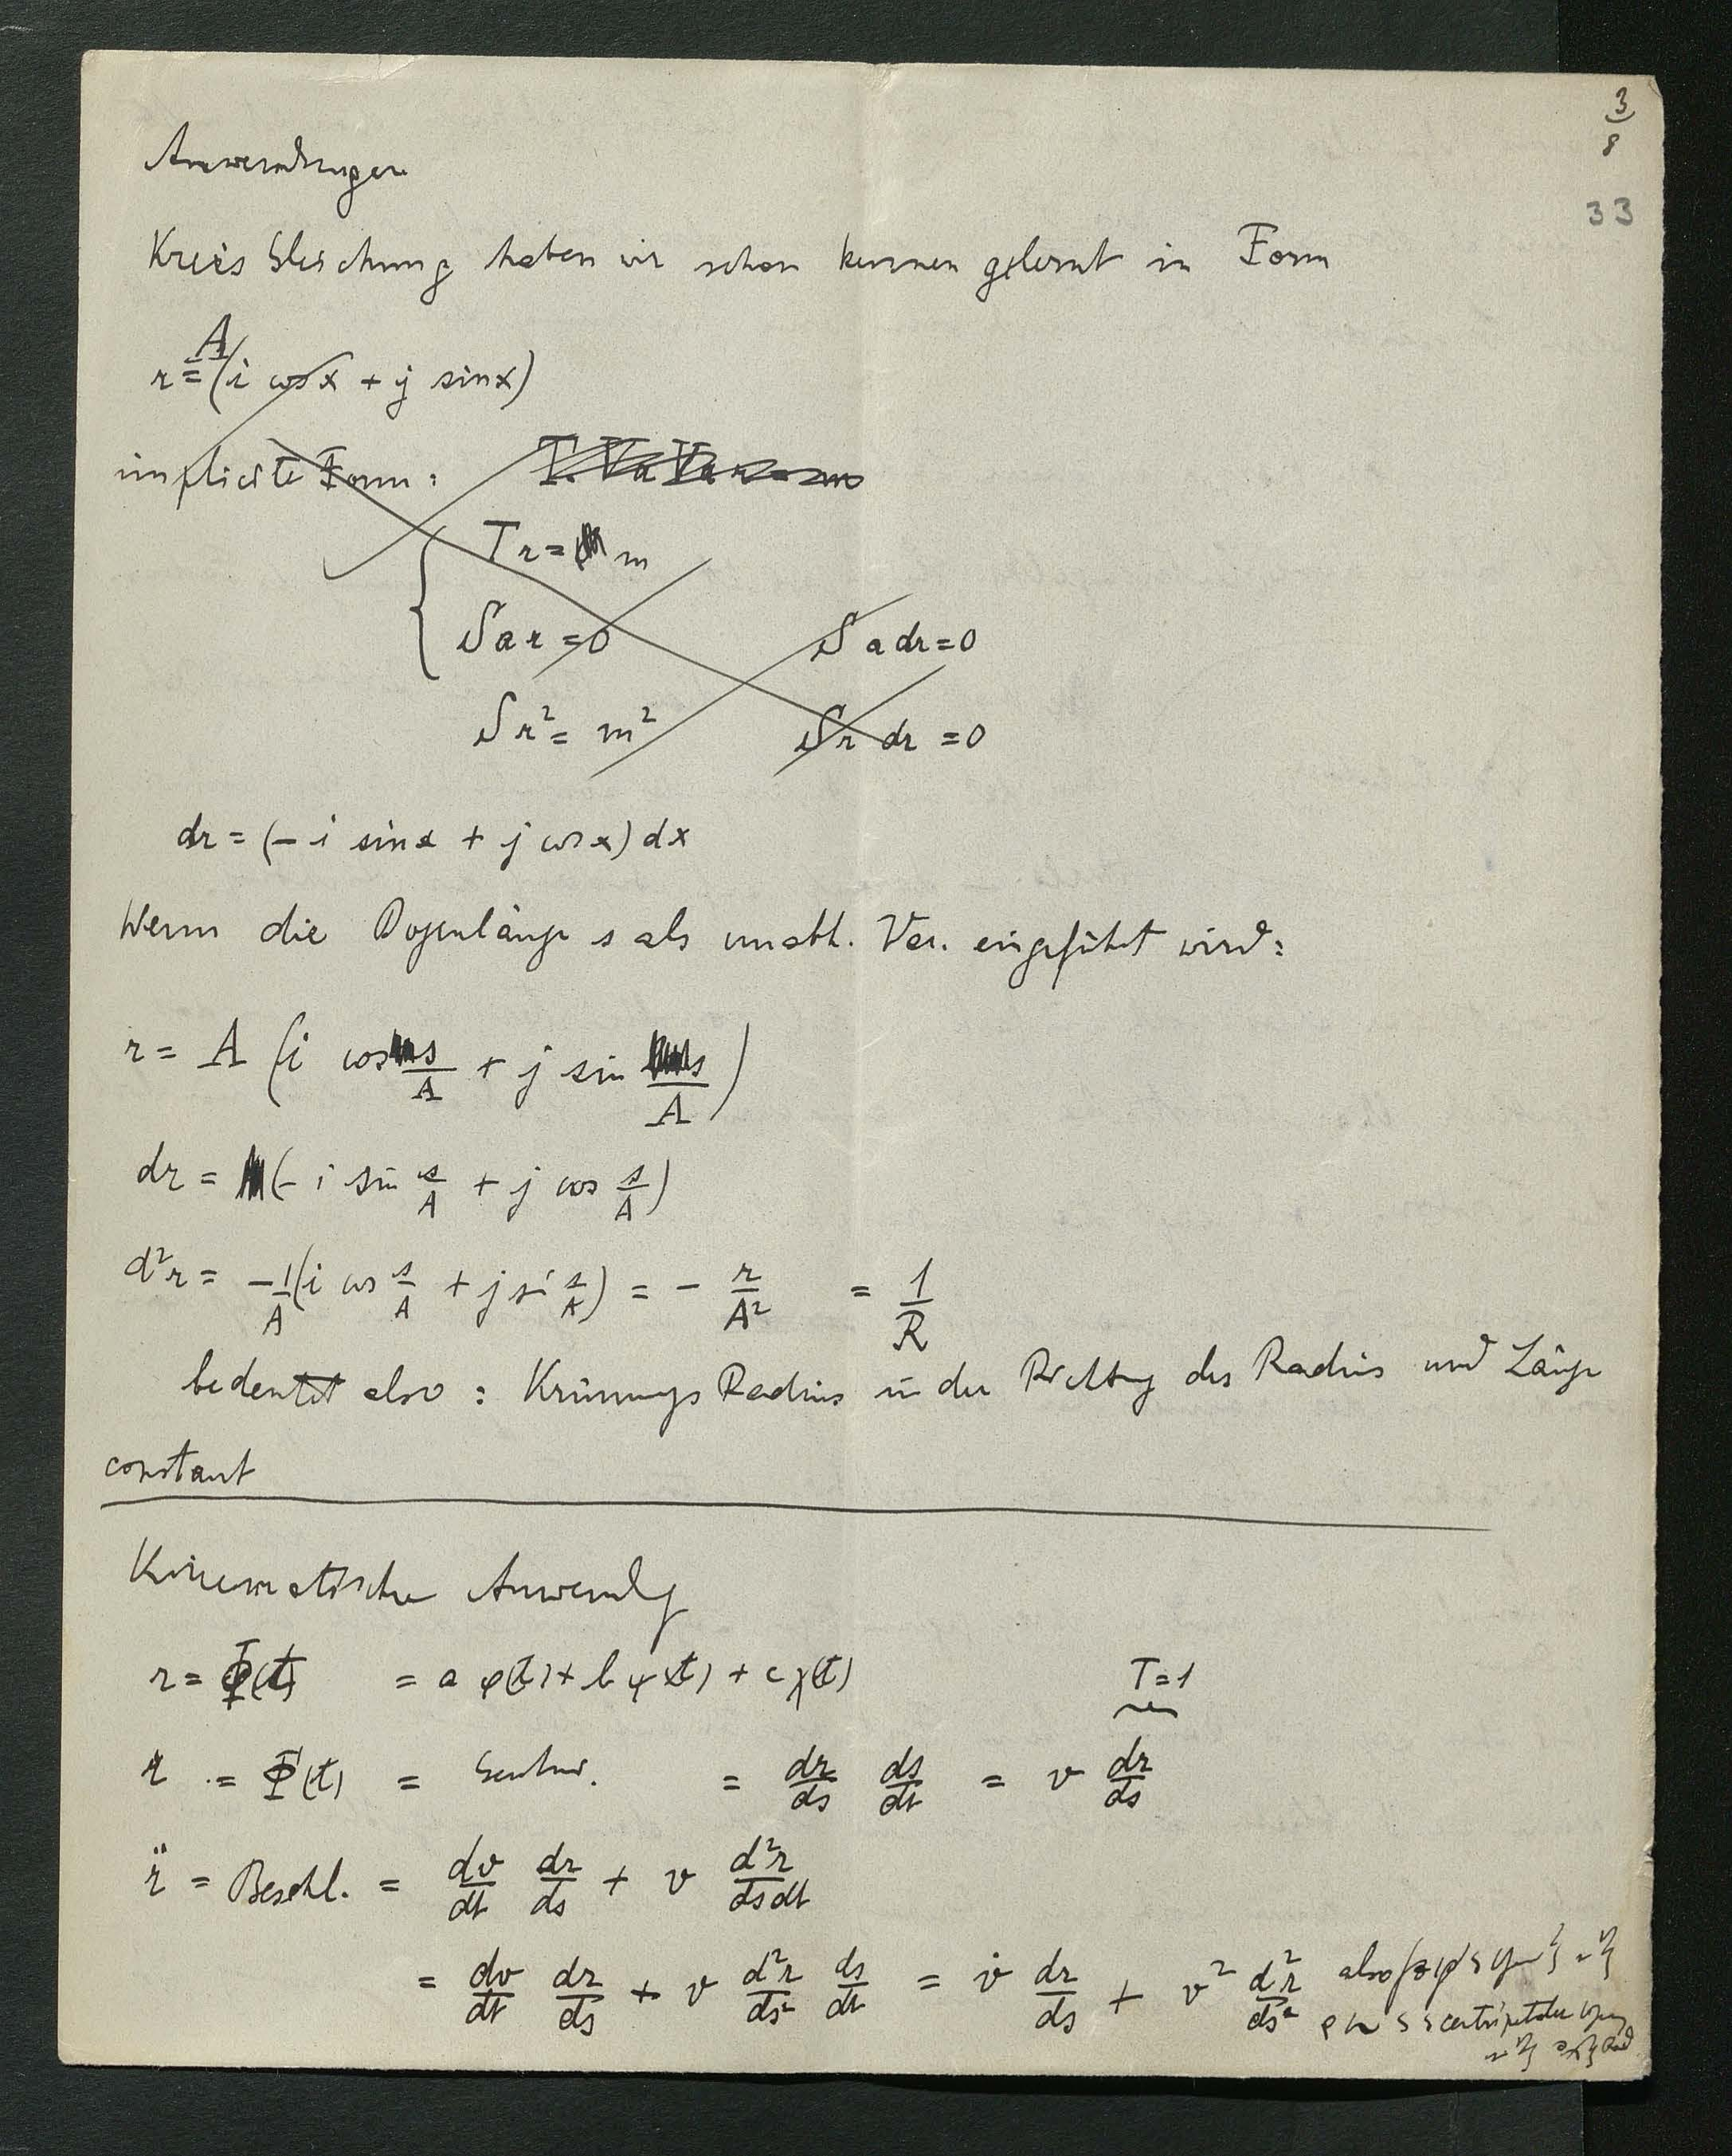 3
8
33
Anwendungen
Kreis Gleichung haben wir schon kennen gelernt in Form
r = A (i cos x + j sin x)
implicite Form :
T r = m
S a r = 0 S a dr = 0
S r² = m² S r dr = 0
dr = (− i sin x + j cos x) dx
Wenn die Bogenlänge s als unabh. Var. eingeführt wird :
r = A (i cos s/A + j sin s/A)
dr = (− i sin s/A + j cos s/A)
d²r = −1/A (i cos s/A + j si s/A) = − r/A² = 1/R
bedeutet also : Krümmungs Radius in der Richtung des Radius und Länge
constant
Kinematische Anwendg
r = Φ(t) = a φ(t) + b ψ(t) + c χ(t) T = 1
ṙ = Φ̇(t) = Geschw. = dr/ds ds/dt = v dr/ds
r̈ = Beschl. = dv/dt dr/ds + v d²r/ds dt
= dv/dt dr/ds + v d²r/ds² ds/dt = v̇ dr/ds + v² d²r/ds² also
centripetale
Rad